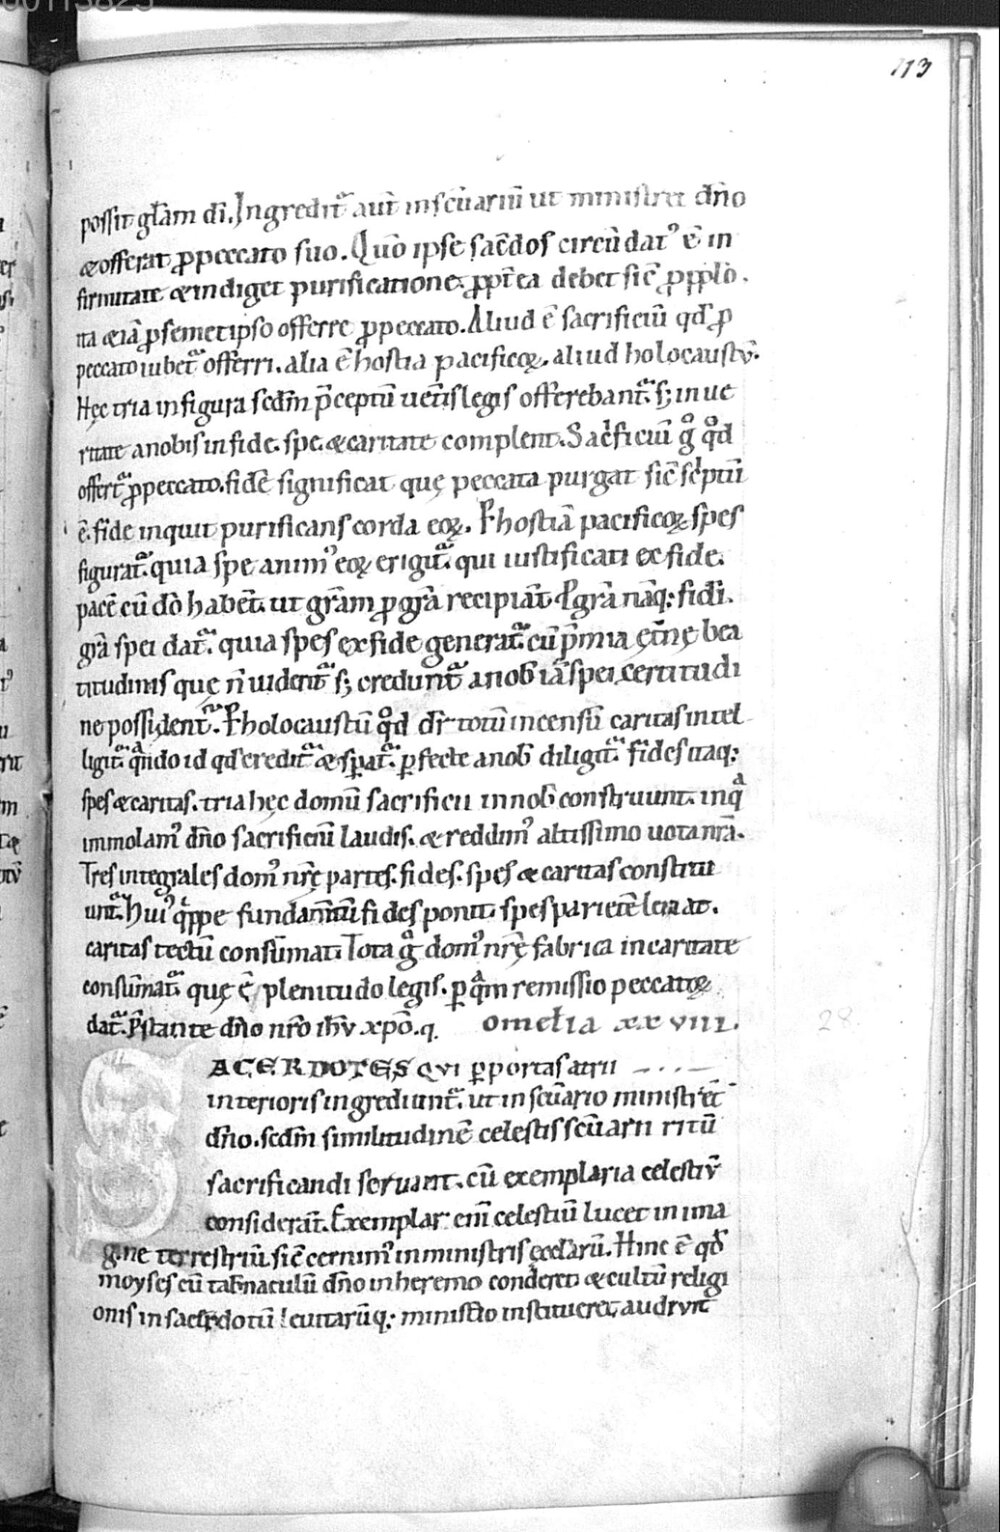 00113825
113
possit gl̄am dī. Ingredit᷑ aut̄ in sc̄uariū ut ministret dn̄o
& offerat ꝓ peccato suo. Quō ipse sac̄dos circūdatꝰ ē in
firmitate & indiget purificatione. ꝓpt̄ea debet sic̄ ꝓ pplo.
ita & iā ꝓ semetipso offerre ꝓ peccato. Aliud ē sacrificiū qđ ꝓ
peccato iubet᷑ offerri. alia ē hostia pacificoꝝ. aliud holocaustū.
Hęc tria in figura scdm̄ p̄ceptū uet̄is legis offerebant᷑. sꝫ in ue
ritate a nobis in fide. spe. & caritate complent᷑. Sac̄ficiū gͦ qͦd
offert᷑ ꝓ peccato. fidē significat quę peccata purgat sic̄ sc̄ptū
ē. fide inquit purificans corda eoꝝ. P̱ hostiā pacificoꝝ spes
figurat᷑. quia spe animꝰ eoꝝ erigit᷑. qui iustificati ex fide.
pacē cū dō habent̄. ut gr̄am ꝓ gr̄a recipiāt. P̱ gr̄a nāq: fidī.
gr̄a spei dat᷑. quia spes ex fide generat᷑. cū p̄mia ęt̄nę bea
titudinis quę n̄ uident᷑ sꝫ credunt᷑ a nob̄ iā spei certitudi
ne possident᷑. P̱ holocaustū qͦd dr̄ totū incensū caritas intel
ligit᷑. qn̄do id qđ credit᷑ & sꝑat᷑. ꝑfecte a nob̄ diligit᷑. fides itaq:
spes & caritas. tria hęc domū sacrificii in nob̄ construunt. in qᵃ
immolamꝰ dn̄o sacrificiū laudis. & reddimꝰ altissimo uota nr̄a.
Tres integrales domꝰ nr̄ę partes. fides. spes & caritas constitu
unt᷑. Huiꝰ qⁱppe fundam̄tū fides ponit. spes parietē leuat.
caritas tectū consūmat. Tota gͦ domꝰ nr̄ę fabrica in caritate
consūmat᷑. quę ē plenitudo legis. ꝑ qᵃm remissio peccatoꝝ
dat᷑. P̄stante dn̄o nr̄o ih̄v xpō. q. omelia xxviii. 28
SACERDOTES QVI ꝑ portas atrii
interioris ingrediunt᷑. ut in sc̄uario ministrēt
dn̄o. scdm̄ similitudinē celestis sc̄uarii ritū
sacrificandi seruant. cū exemplaria celestiū
considerāt. Exemplar eni̅ celestiū lucet in ima
gine terrestriū. sic̄ cernimꝰ in ministris ęccl̄arū. Hinc ē qđ
moyses cū tab̄naculū dn̄o in heremo conderet & cultū religi
onis in sacerdotū leuitarūq: ministerio institueret, audivit